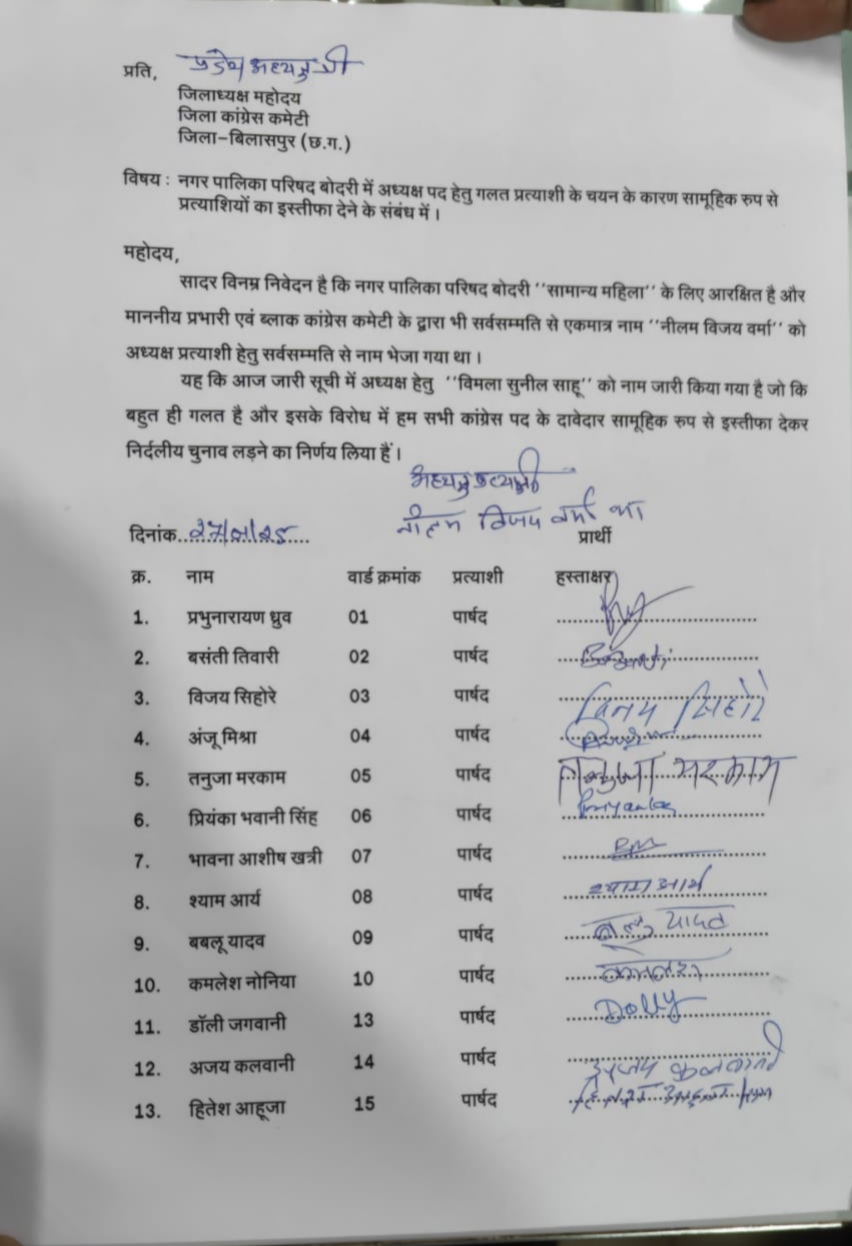 प्रति, प्रदेश अध्यक्ष श्री
जिलाध्यक्ष महोदय
जिला कांग्रेस कमेटी
जिला-बिलासपुर (छ.ग.)
विषय : नगर पालिका परिषद बोदरी में अध्यक्ष पद हेतु गलत प्रत्याशी के चयन के कारण सामूहिक रुप से
प्रत्याशियों का इस्तीफा देने के संबंध में।
महोदय,
सादर विनम्र निवेदन है कि नगर पालिका परिषद बोदरी ''सामान्य महिला'' के लिए आरक्षित है और
माननीय प्रभारी एवं ब्लाक कांग्रेस कमेटी के द्वारा भी सर्वसम्मति से एकमात्र नाम ''नीलम विजय वर्मा'' को
अध्यक्ष प्रत्याशी हेतु सर्वसम्मति से नाम भेजा गया था।
यह कि आज जारी सूची में अध्यक्ष हेतु ''विमला सुनील साहू'' को नाम जारी किया गया है जो कि
बहुत ही गलत है और इसके विरोध में हम सभी कांग्रेस पद के दावेदार सामूहिक रुप से इस्तीफा देकर
निर्दलीय चुनाव लड़ने का निर्णय लिया हैं।
अध्यक्ष प्रत्याशी
नीलम विजय वर्मा
दिनांक..27/01/25.... प्रार्थी
क्र. नाम वार्ड क्रमांक प्रत्याशी हस्ताक्षर
1. प्रभुनारायण ध्रुव 01 पार्षद
2. बसंती तिवारी 02 पार्षद
3. विजय सिहोरे 03 पार्षद विजय सिहोरे
4. अंजू मिश्रा 04 पार्षद
5. तनुजा मरकाम 05 पार्षद तनुजा मरकाम
6. प्रियंका भवानी सिंह 06 पार्षद Priyanka
7. भावना आशीष खत्री 07 पार्षद
8. श्याम आर्य 08 पार्षद श्याम आर्य
9. बबलू यादव 09 पार्षद बबलु यादव
10. कमलेश नोनिया 10 पार्षद कमलेश
11. डॉली जगवानी 13 पार्षद Dolly
12. अजय कलवानी 14 पार्षद अजय कलवानी
13. हितेश आहूजा 15 पार्षद